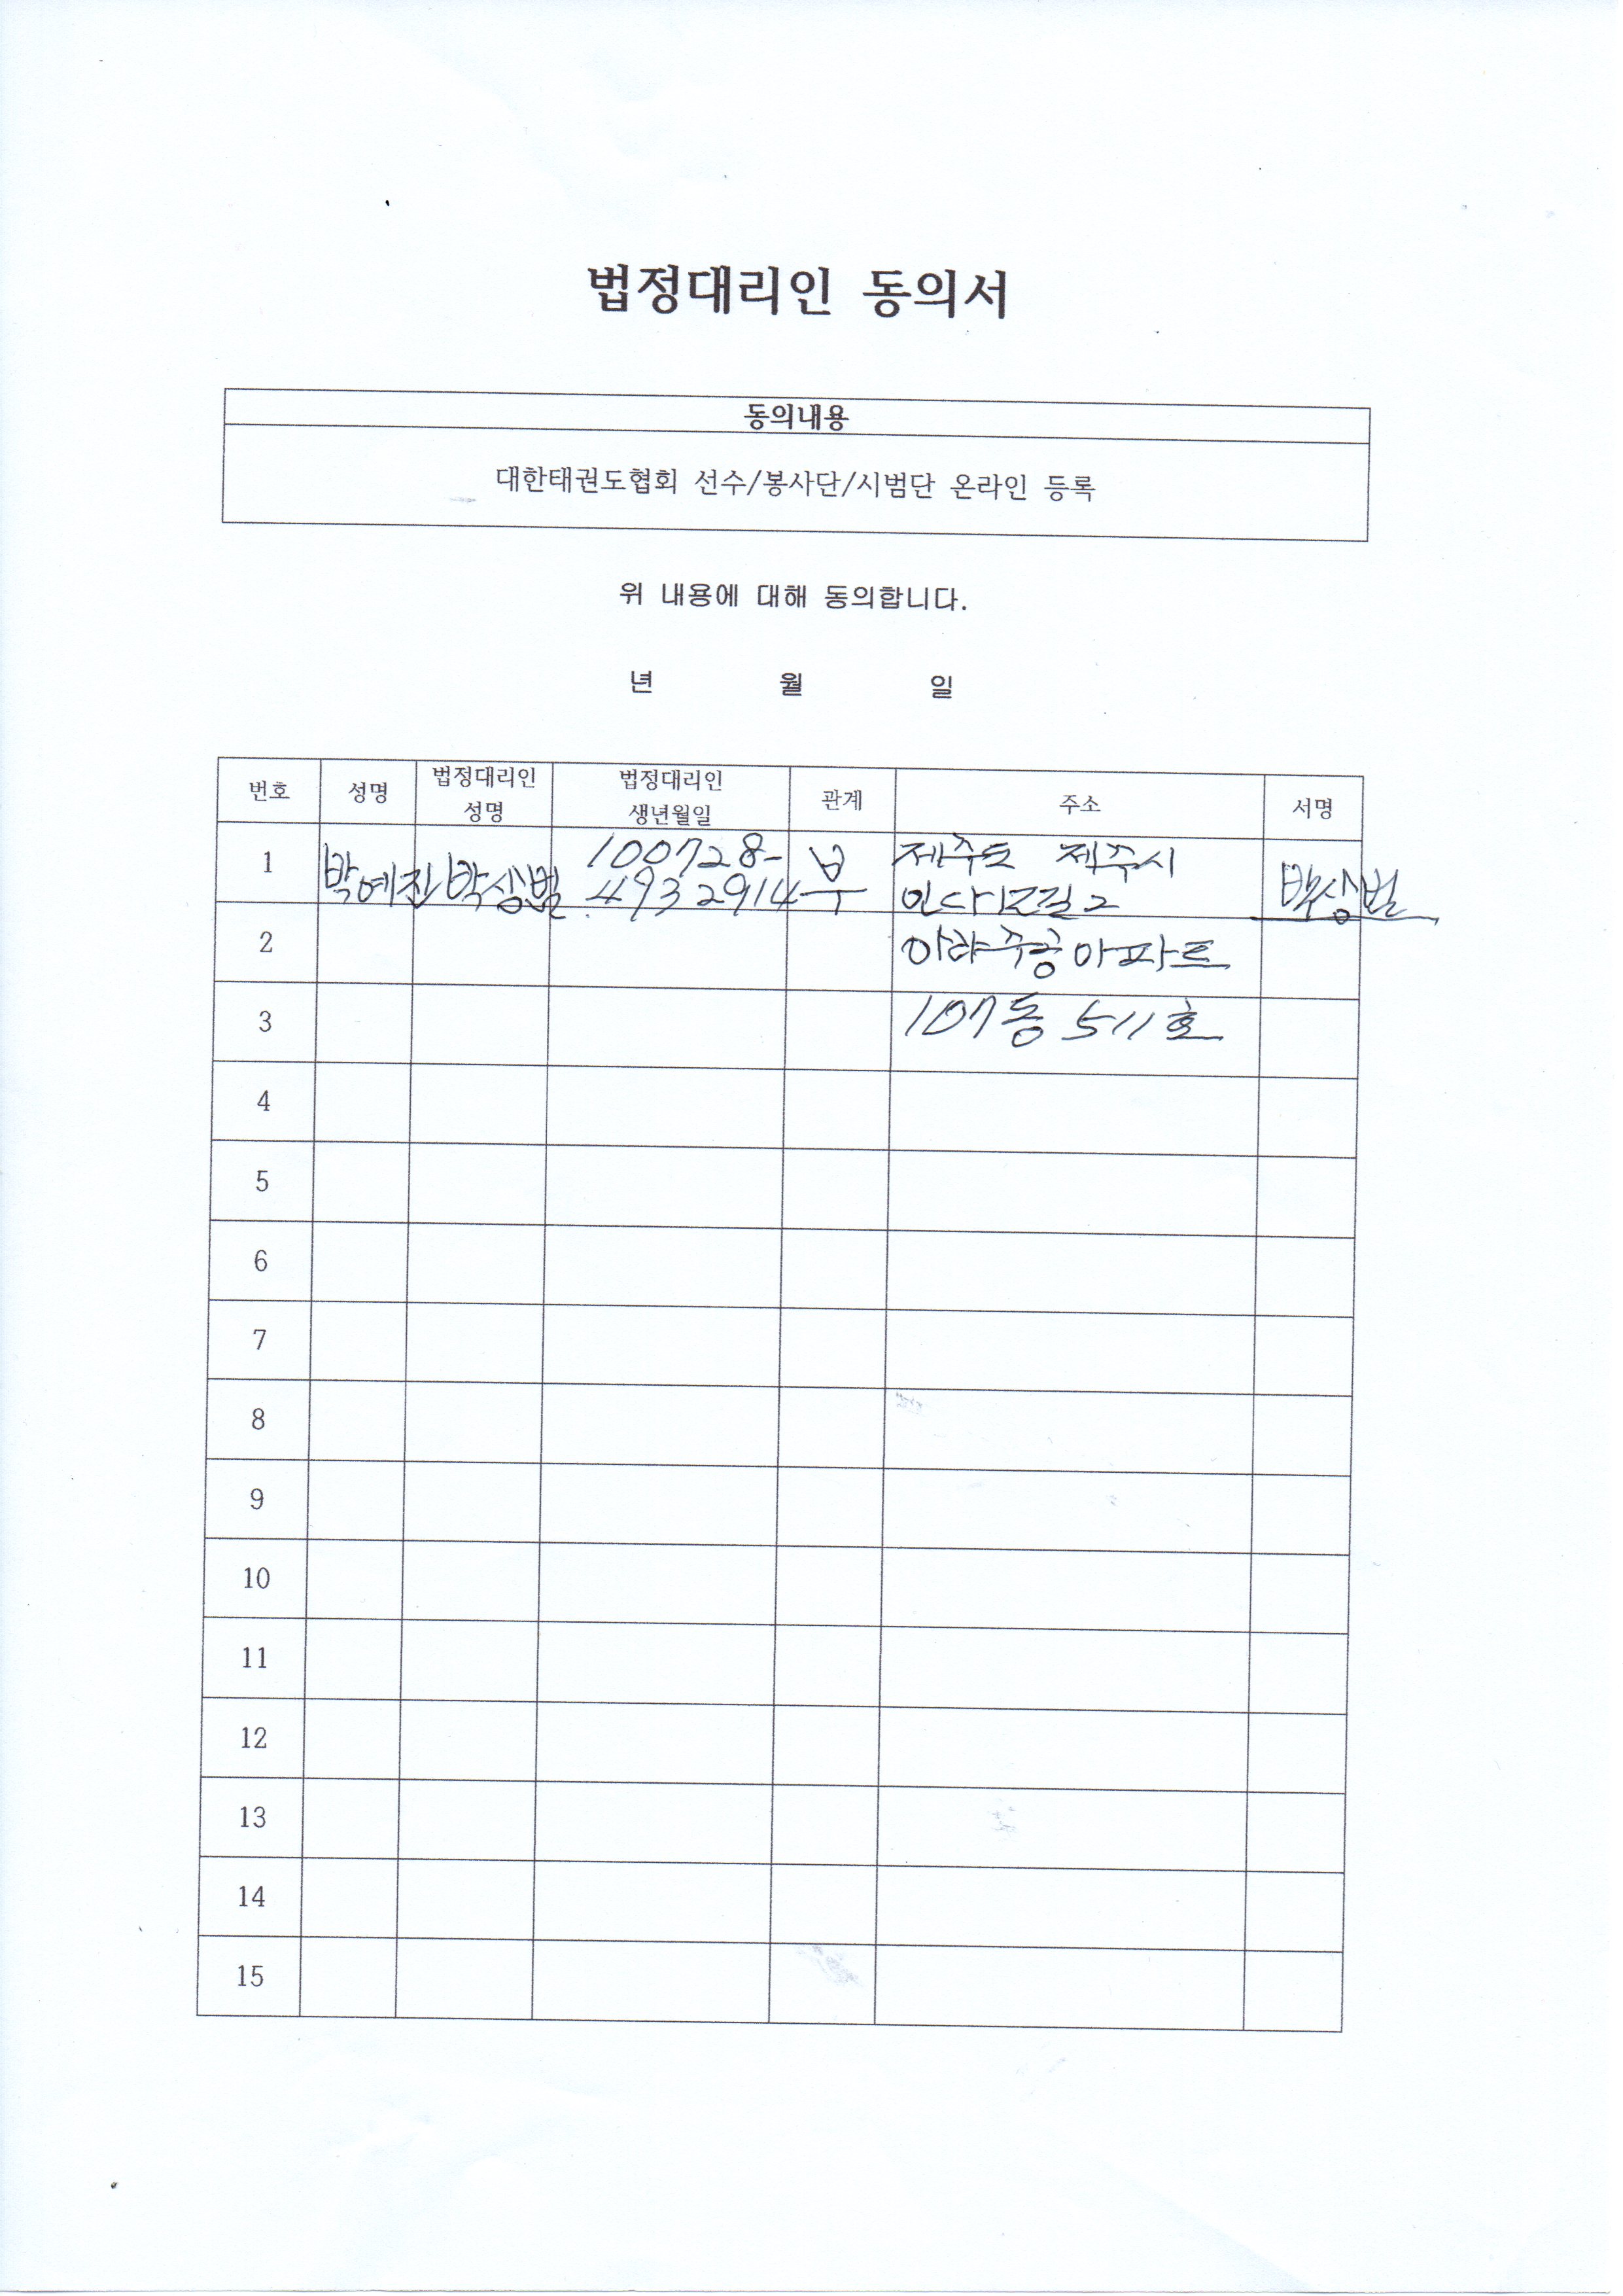 법정대리인 동의서
동의내용
대한태권도협회 선수/봉사단/시범단 온라인 등록
위 내용에 대해 동의합니다.
년 월 일
번호 성명 법정대리인 성명 법정대리인 생년월일 관계 주소 서명
1 박예진 박상범 100728- 부 제주도 제주시 박상범
4932914 인다13길2
2 아라주공아파트
3 107동 511호
4
5
6
7
8
9
10
11
12
13
14
15